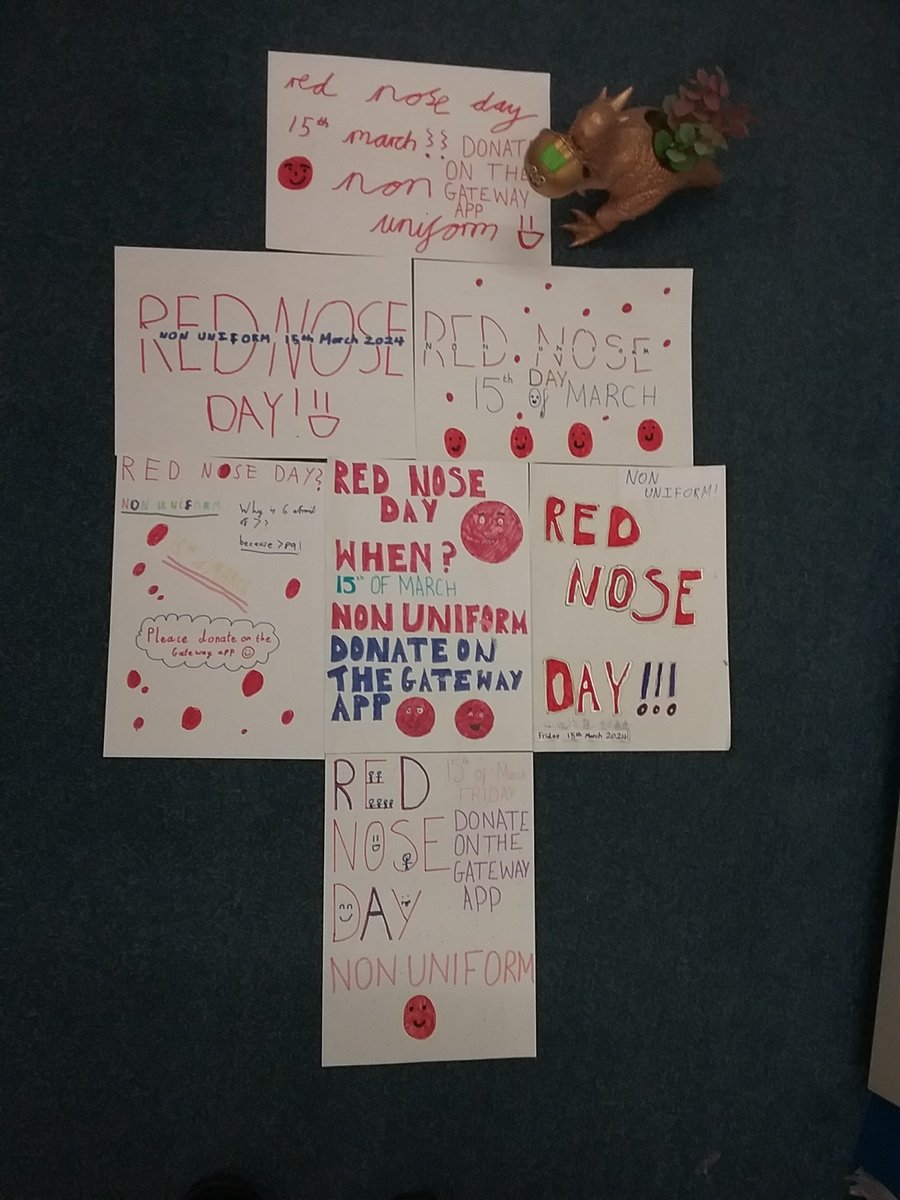 red nose day
15th march!!
DONATE
ON THE
GATEWAY
APP
non
uniform
RED NOSE
NON UNIFORM 15th March 2024
DAY!!!
RED NOSE
NON UNIFORM
DAY
15th of MARCH
RED NOSE DAY?
NON UNIFORM
Why 6 afraid
of 7?
because 789!
Please donate on the
Gateway app
RED NOSE
DAY
WHEN?
15th OF MARCH
NON UNIFORM
DONATE ON
THE GATEWAY
APP
NON
UNIFORM!
RED
NOSE
DAY!!!
Friday 15th March 2024
RED
NOSE
DAY
15th of March
FRIDAY
DONATE
ON THE
GATEWAY
APP
NON UNIFORM